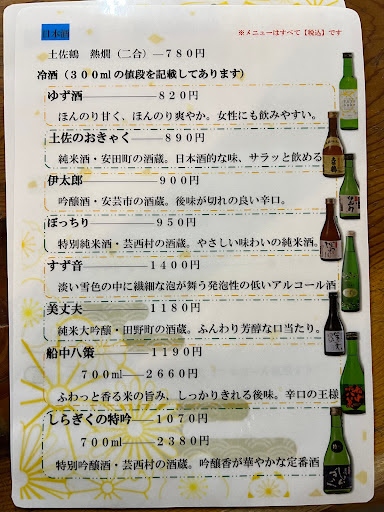 日本酒
※メニューはすべて【税込】です
土佐鶴 熱燗(二合)―780円
冷酒(300mlの値段を記載してあります)
ゆず酒――――820円
ほんのり甘く、ほんのり爽やか。女性にも飲みやすい。
土佐のおきゃく――890円
純米酒・安田町の酒蔵。日本酒的な味、サラッと飲める
伊太郎――――900円
吟醸酒・安芸市の酒蔵。後味が切れの良い辛口。
ぽっちり――――950円
特別純米酒・芸西村の酒蔵。やさしい味わいの純米酒。
すず音――――1400円
淡い雪色の中に繊細な泡が舞う発泡性の低いアルコール酒
美丈夫――――1180円
純米大吟醸・田野町の酒蔵。ふんわり芳醇な口当たり。
船中八策――――1190円
700ml――2660円
ふわっと香る米の旨み、しっかりきれる後味。辛口の王様
しらぎくの特吟――1070円
700ml――2380円
特別吟醸酒・芸西村の酒蔵。吟醸香が華やかな定番酒